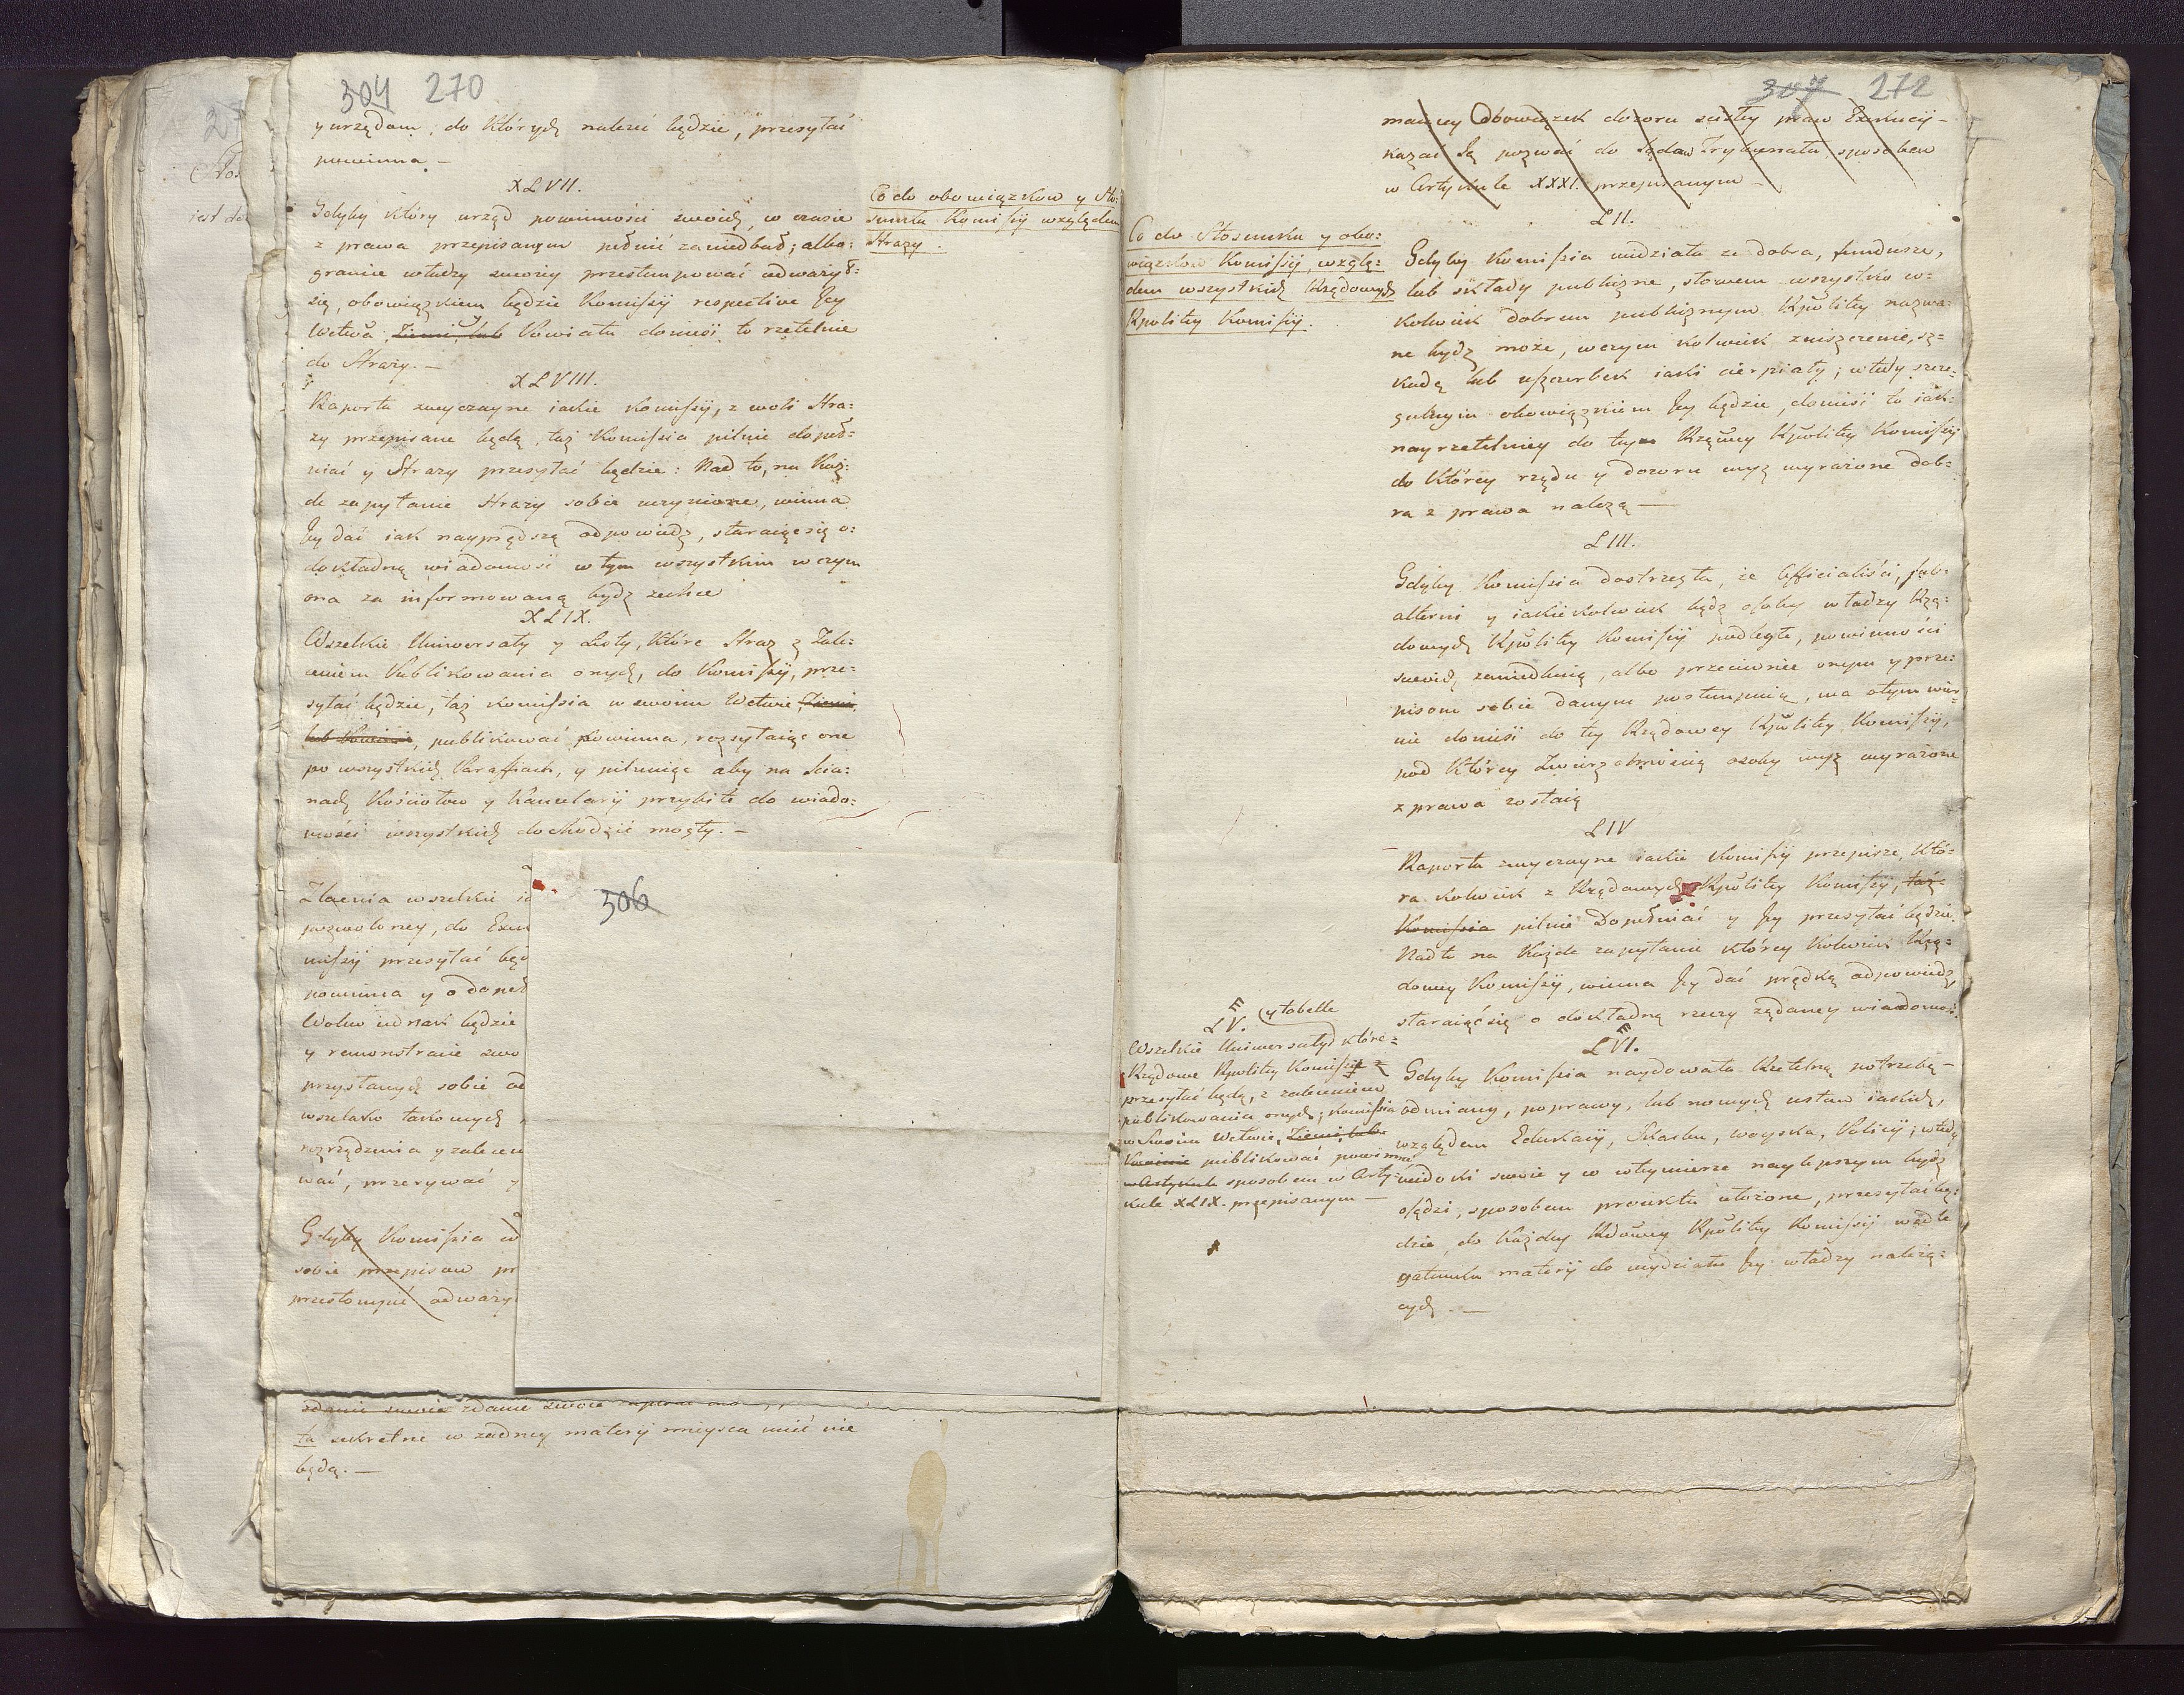 304 270
y urzędom, do których należeć będzie, przesyłać
powinna —
XLVII.
Gdyby który urząd powinności swoich w czasie
z prawa przepisanym pełnić zaniedbał; albo
granice władzy swoiey przestempować odważył
się, obowiązkiem będzie Komissyi respective Jey
Wctwa, Ziemi, lub Powiatu donieść to rzetelnie
do Straży. —
XLVIII.
Raporta zwyczayne iakie Komissyi, z woli Stra:
ży przepisane będą, taż Komissia pilnie dopeł:
niać y Straży przesyłać będzie: Nad to, na Każ:
de zapytanie Straży sobie uczynione, winna
Jey dać iak nayprędszą odpowiedź, staraiąc się o:
dokładną wiadomość w tym wszystkim w czym
ona za informowaną bydź zechce
XLIX.
Wszelkie Uniwersały y Listy, które Straż z Zale:
ceniem Publikowania onych, do Komissyi, prze:
syłać będzie, taż Komissia w swoim Wctwie, Ziemi,
lub Powiecie, publikować powinna, rozsyłaiąc one
po wszystkich Paraffiach, y pilnuiąc aby na Scia:
nach Kościołow y Kancelaryi przybite do wiado:
mości wszystkich dochodzić mogły. —
Co do obowiązkow y Sto:
sunku Komissyi względem
Straży.
Zlecenia wszelkie
pozwoloney, do
missyi przesyłać
powinna y o
Wolno iednak będzie
y remonstracie
przysłanych sobie
wszelako takowych
rozrządzenia y
wać, przerywać y
Gdyby Komissia
sobie przepisow
przestompić
506
zdanie swoie zdanie
ta sekretne w żadney materyi mieysca mieć nie
będą. —
307 272
maiący Obowiązek dozoru scisłey praw Exekucyi —
kazać Ją pozwać do Sądow Trybunału, sposobem
w Artykule XXXI. przepisanym —
LII.
Co do Stosunku y obo:
wiązkow Komissyi, wzglę:
dem wszystkich Rządowych
Rpolitey Komissyi.
Gdyby Komissia widziała ze dobra, fundusze,
lub składy publiczne, słowem wszystko co:
kolwiek dobrem publicznym Rpolitey nazwa:
ne bydź może, w czym kolwiek zniszczenie, sz:
kodę lub uszczerbek iaki cierpiały; wtedy szcze:
gulnym obowiązkiem Jey będzie, donieść to iak:
nayrzetelniey do tey Rządowey Rpolitey Komissyi
do Którey rządu y dozoru wyż wyrażone dob:
ra z prawa należą —
LIII.
Gdyby Komissia dostrzegła, że Officialiści, sub:
alterni y iakiekolwiek bądź osoby władzy Rzą:
dowych Rpolitey Komissyi podległe, powinności
swoich, zaniedbuią, albo przeciwnie onym y prze:
pisom sobie danym postempuią, ma o tym wier:
nie donieść do tey Rządowey Rpolitey Komissyi,
pod Którey Zwierzchnością osoby wyż wyrażone
z prawa zostaią
LIV
Raporta zwyczayne iakie Komissyi przepisze, Któ:
ra kolwiek z Rządowych Rpolitey Komissyi, taż
Komissia pilnie Dopełniać y Jey przesyłać będzie.
Nadto na Każde zapytanie którey kolwiek Rzą:
dowey Komissyi, winna Jey dać prędką odpowiedź,
staraiąc się o dokładną rzeczy żądaney wiadomoś.
LV. y tabelle
Wszelkie Uniwersały które:
Rządowe Rpolitey Komissye
przesyłać będą, z zaleceniem
publikowania onych; Komissia
w Swoim Wctwie, Ziemi, lub
Powiecie publikować powinna
w Artykule sposobem w Arty:
kule XLIX. przepisanym —
LVI.
Gdyby Komissia naydowała Rzetelną potrzebę —
odmiany, poprawy, lub nowych ustaw iakich,
względem Edukacyi, Skarbu, woyska, Policyi; wtedy
widoki swoie y w wtymierze naylepszym bydź
osądzi, sposobem proiektu ułożone, przesyłać bę:
dzie, do Każdey Rdowey Rpolitey Komissyi wedle
gatunku materyi do wydziału Jey władzy należą:
cych. —